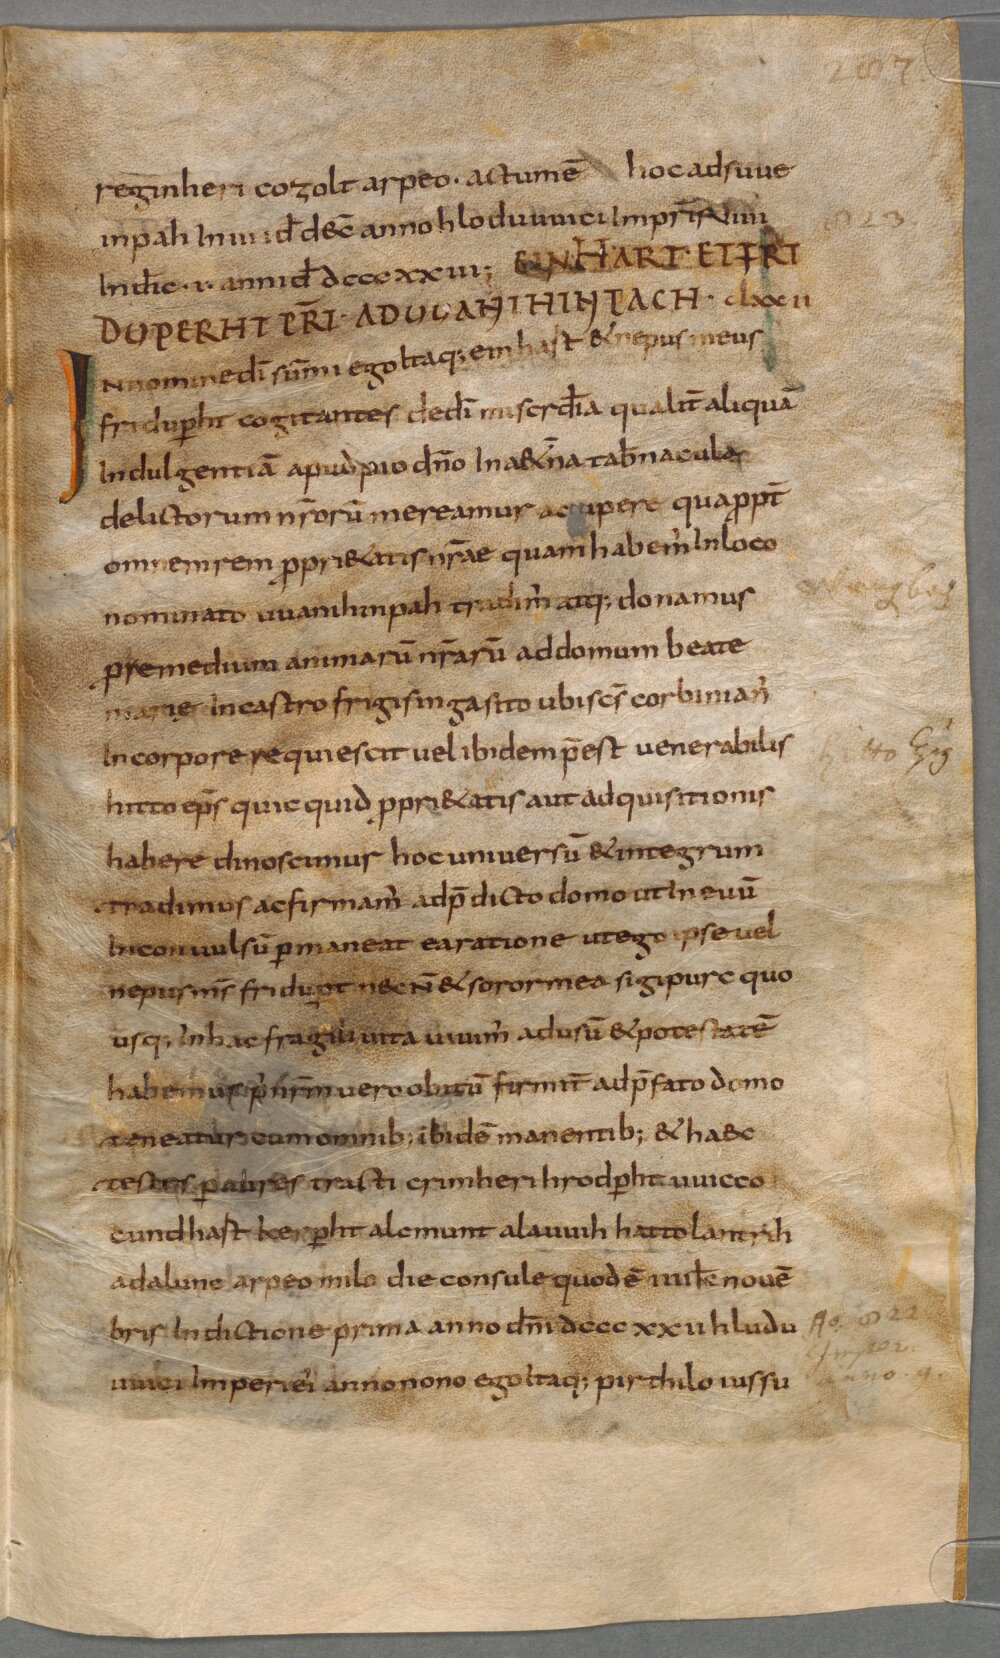 207
reginheri cozolt arpeo · actum ē hoc ad suue
inpah In iiii id dec̄ anno hloduuuici Imp̄r̄
Indic̄ · i · anni dn̄i dcccxxiii ; EINHART ET FRI
DUPERHT P̄R̄I · AD UUANIHINPACH · clxxii
823
IN nomine dī sūmi ego Itaq; einhart & nepus meus
friduꝑht cogitantes de dī miscrdīa qualit̄ aliquā
Indulgentiā apud pio dn̄o In a&̄na tab̄nacula
delictorum nr̄orū mereamur accipere quapropt̄
omnem rem ꝓpri&atis nr̄ae quam habem̄ In loco
nominato uuanihinpah tradim̄ atq; donamus
ꝓ remedium animarū nr̄arū ad domum beate
marie In castro frigisinga sito ubi sc̄s corbinian̄
In corpore requiescit uel ibidem p̄est uenerabilis
hitto
hitto ep̄s quicquid ꝓpri&atis aut adquisitionis
habere dinoscimus hoc uniuersū & integrum
tradimus ac firmam̄ ad p̄dicto domo ut In euū
Inconuulsū ꝑmaneat ea ratione ut ego ipse uel
nepus ms̄ friduꝑt nec n̄ & soror mea sigipurc quo
usq; In hac fragili uita uiuim̄ ad usū & potestatē
habemus p̄ nr̄m uero obitū firmit̄ ad p̄fato domo
teneatur cum omnib; ibidē manentib; & haec
testes ꝑ aures tracti crimheri hrodꝑht uuicco
cundhart kerꝑht alcmunt alauuih hatto lantrih
adalunc arpeo milo die consule quod ē iiii kl̄ nouē
bris Indictione prima anno dn̄i dcccxxii hludu
Aō. 822
uuici Imperii ei anno nono ego Itaq; pirhtilo iussu
anno . 9 .